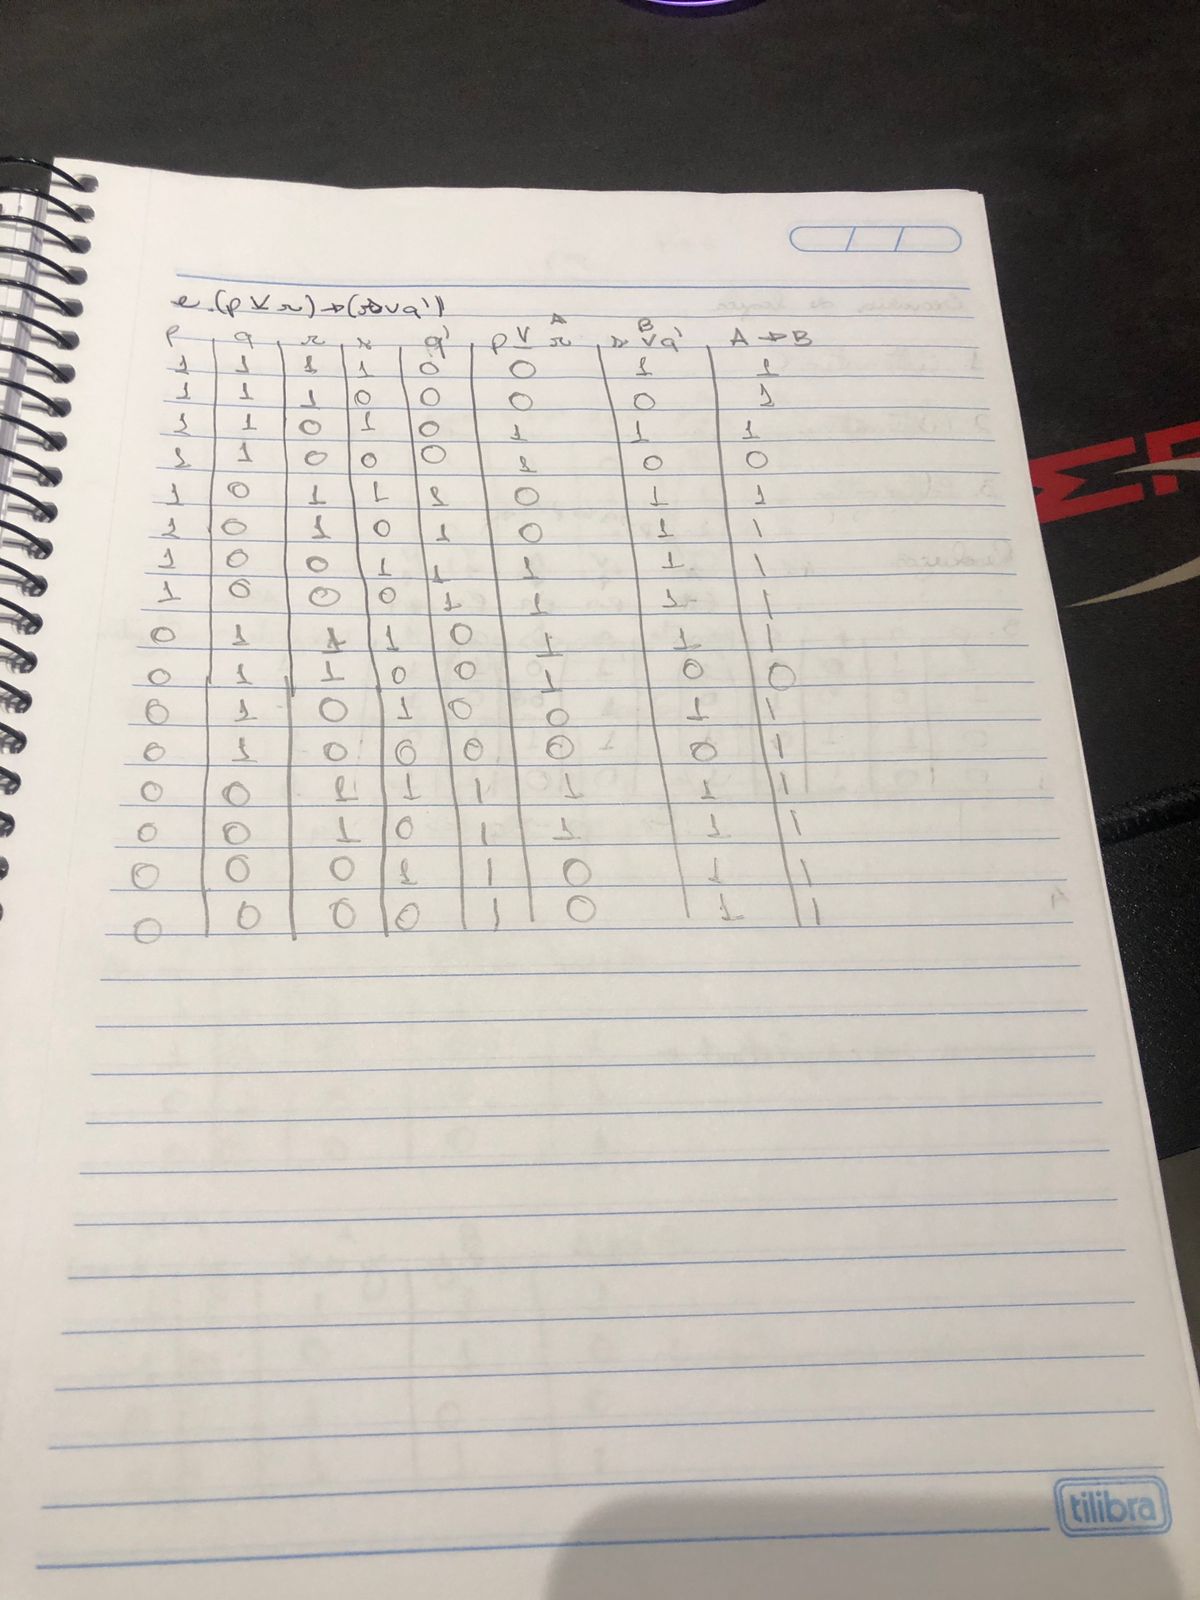 e. (p ⊻ r) → (s ∨ q')
p q r s q' p ⊻ r A s ∨ q' B A → B
1 1 1 1 0 0 1 1
1 1 1 0 0 0 0 1
1 1 0 1 0 1 1 1
1 1 0 0 0 1 0 0
1 0 1 1 1 0 1 1
1 0 1 0 1 0 1 1
1 0 0 1 1 1 1 1
1 0 0 0 1 1 1 1
0 1 1 1 0 1 1 1
0 1 1 0 0 1 0 0
0 1 0 1 0 0 1 1
0 1 0 0 0 0 0 1
0 0 1 1 1 1 1 1
0 0 1 0 1 1 1 1
0 0 0 1 1 0 1 1
0 0 0 0 1 0 1 1
tilibra